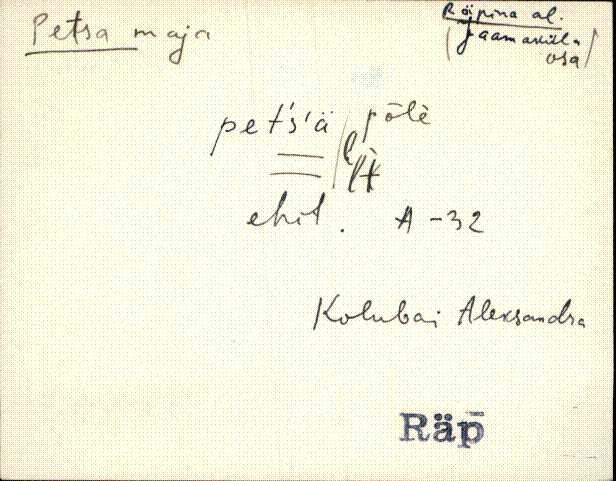 Petsa maja
Räpina al.
(Jaamaküla
osa)
pet's'ä / põlè
l
lt
ehit. A-32
Kolubai Aleksandra
Räp